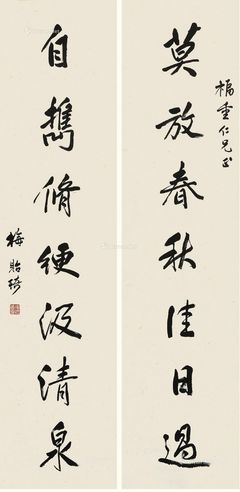 莫放春秋佳日過
重仁兄正
自擕脩綆汲清泉
梅貽琦